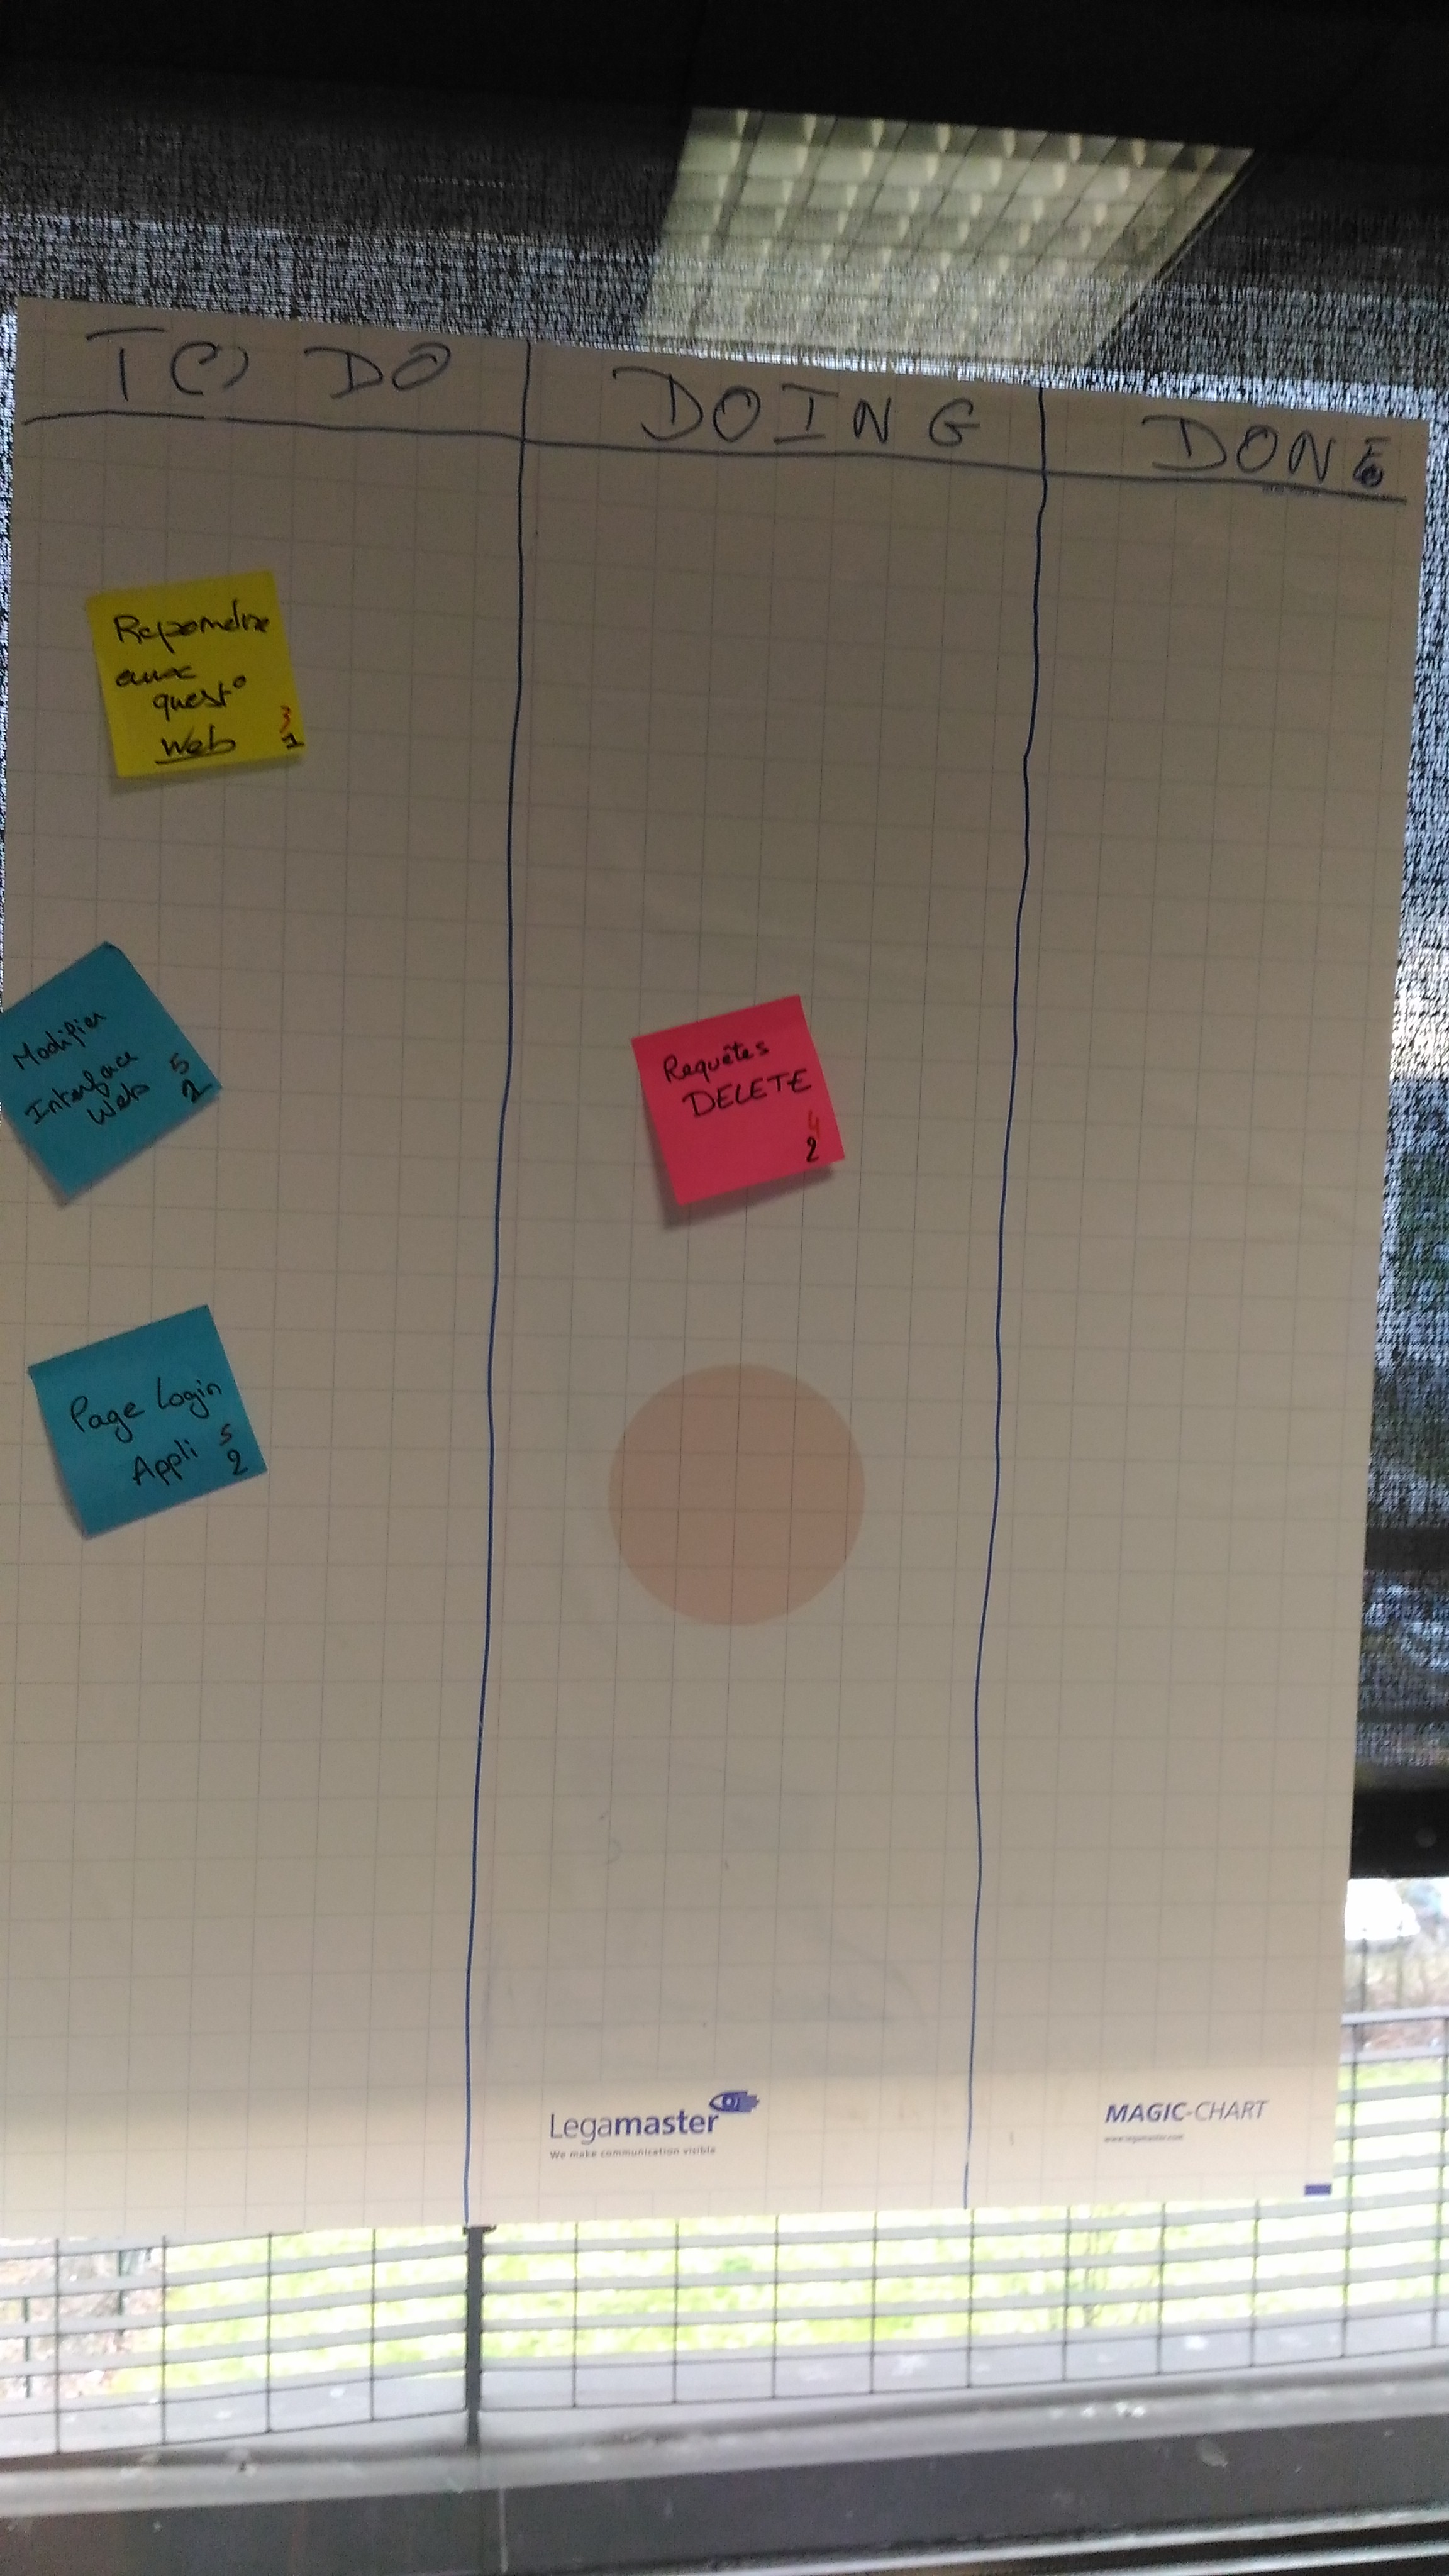 TO DO
DOING
DONE
Repondre
aux
quest°
Web
3
1
Modifier
Interface
Web
5
2
Page Login
Appli
5
2
Requêtes
DELETE
4
2
Legamaster
We make communication visible
MAGIC-CHART
www.legamaster.com